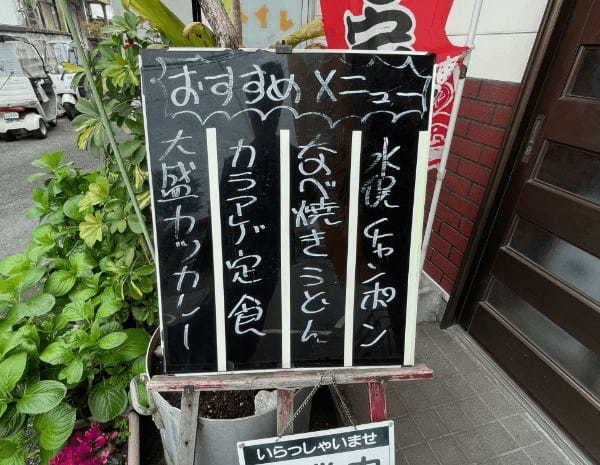 おすすめメニュー
水俣チャンポン
なべ焼きうどん
カラアゲ定食
大盛カツカレー
いらっしゃいませ